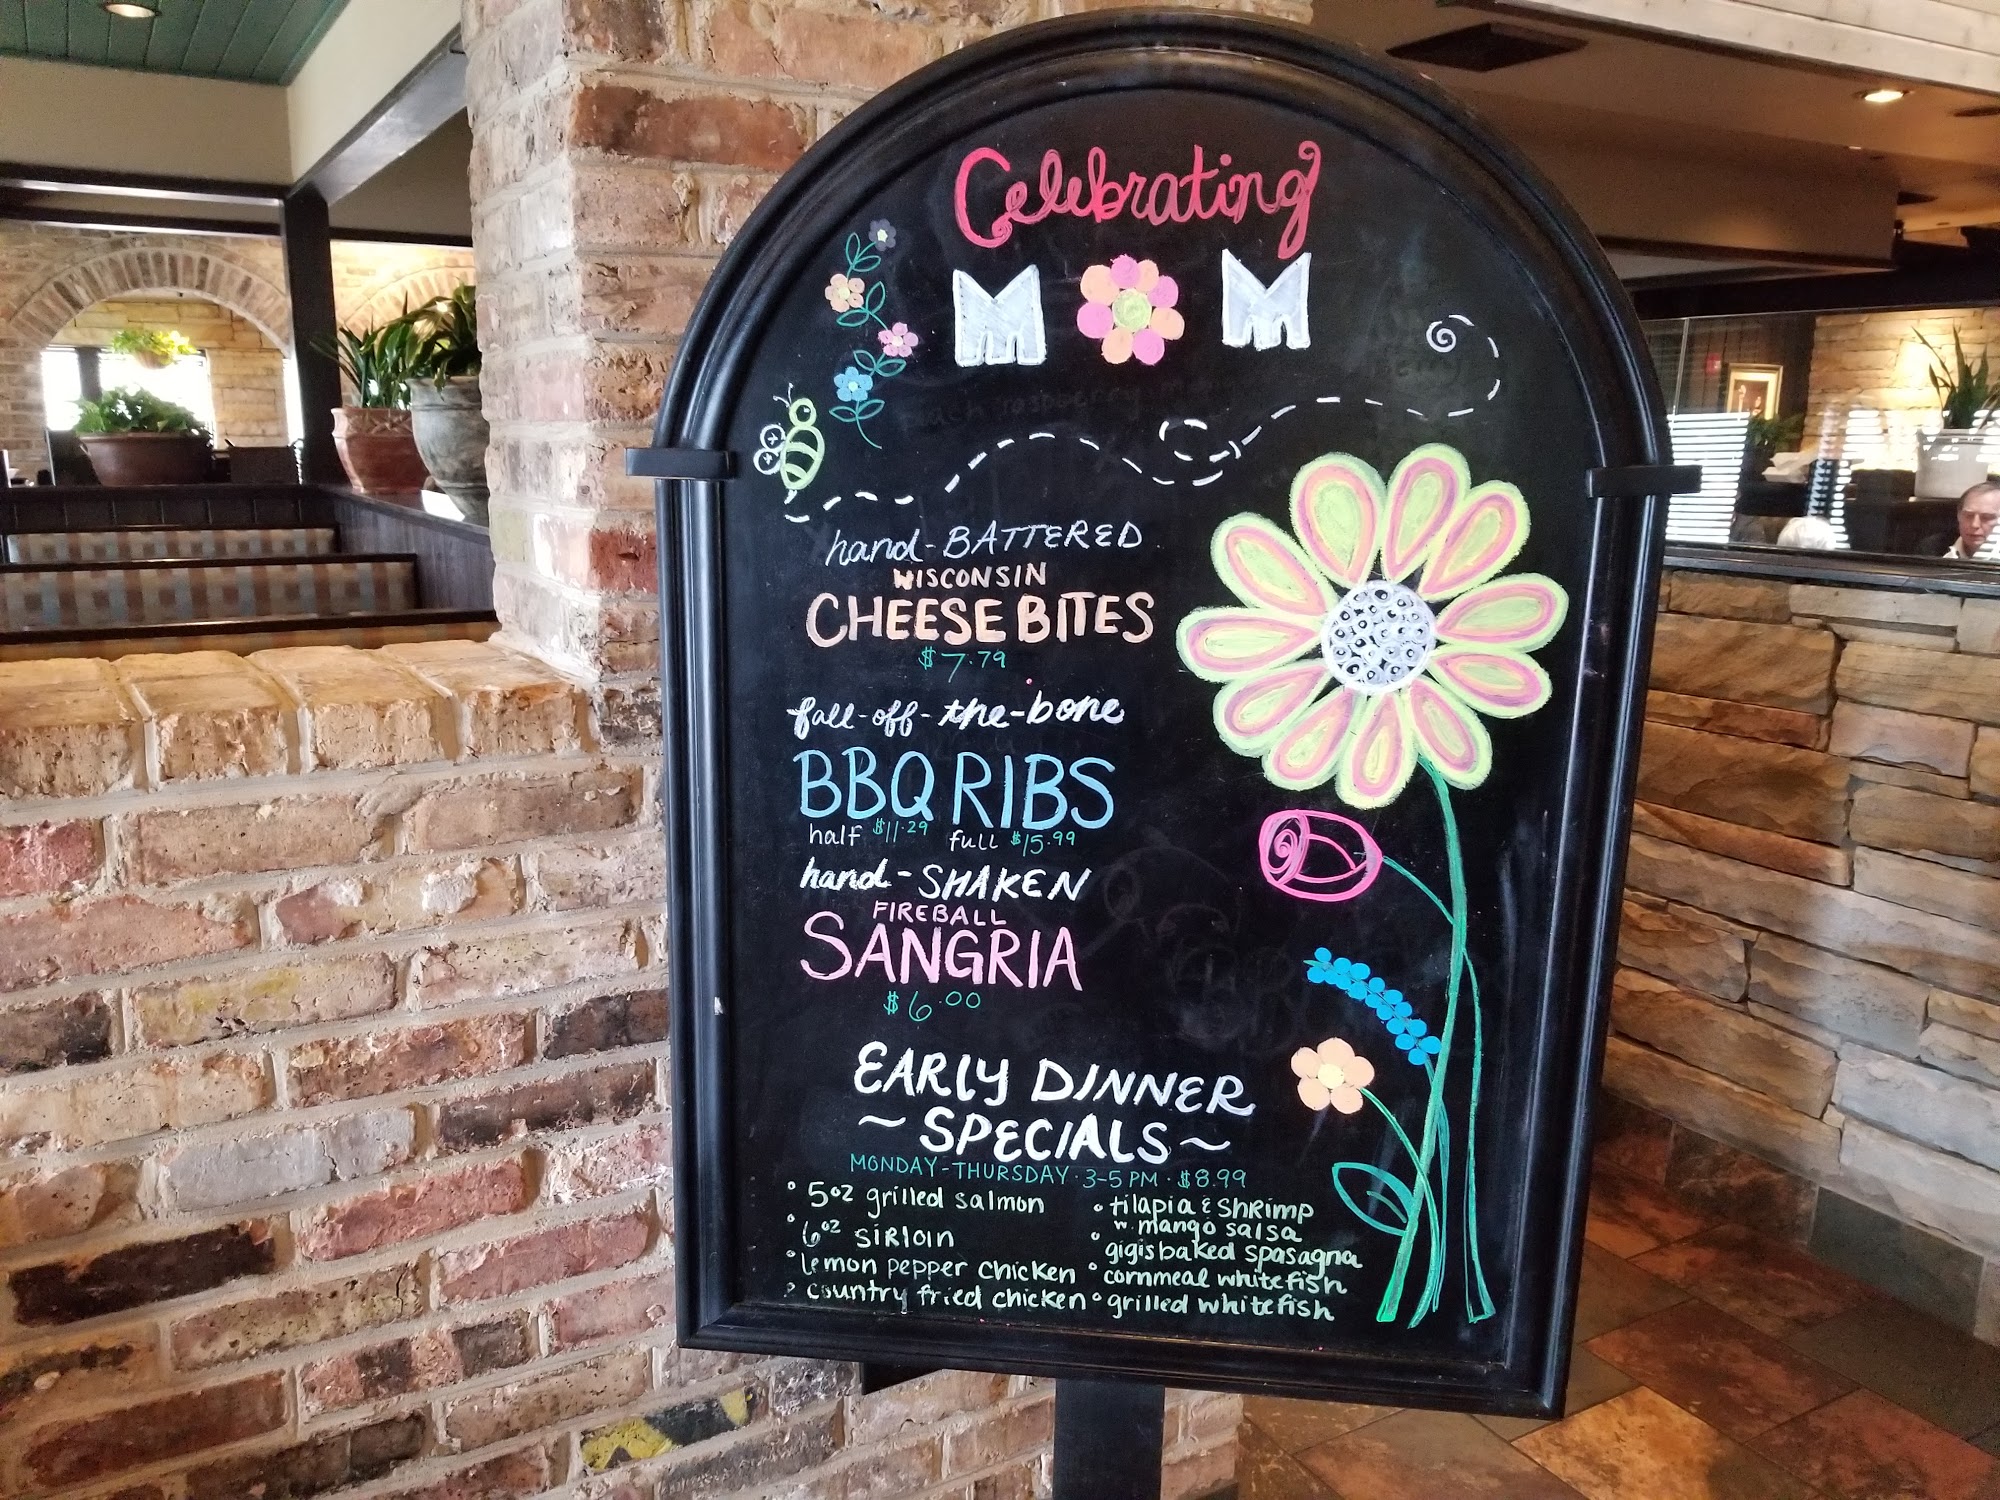 Celebrating
MOM
hand-BATTERED
WISCONSIN
CHEESE BITES
$7.79
fall-off-the-bone
BBQ RIBS
half $11.29 full $15.99
hand-SHAKEN
FIREBALL
SANGRIA
$6.00
EARLY DINNER
~SPECIALS~
MONDAY-THURSDAY·3-5 PM·$8.99
° 5oz grilled salmon
° 6oz sirloin
° lemon pepper chicken
° country fried chicken
° tilapia & shrimp
w. mango salsa
° gigis baked spasagna
° cornmeal whitefish
° grilled whitefish